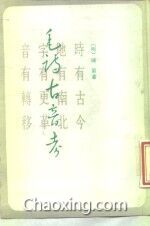 毛詩古音考
〔明〕陳第著
時有古今
地有南北
字有更革
音有轉移
Chaoxing.com